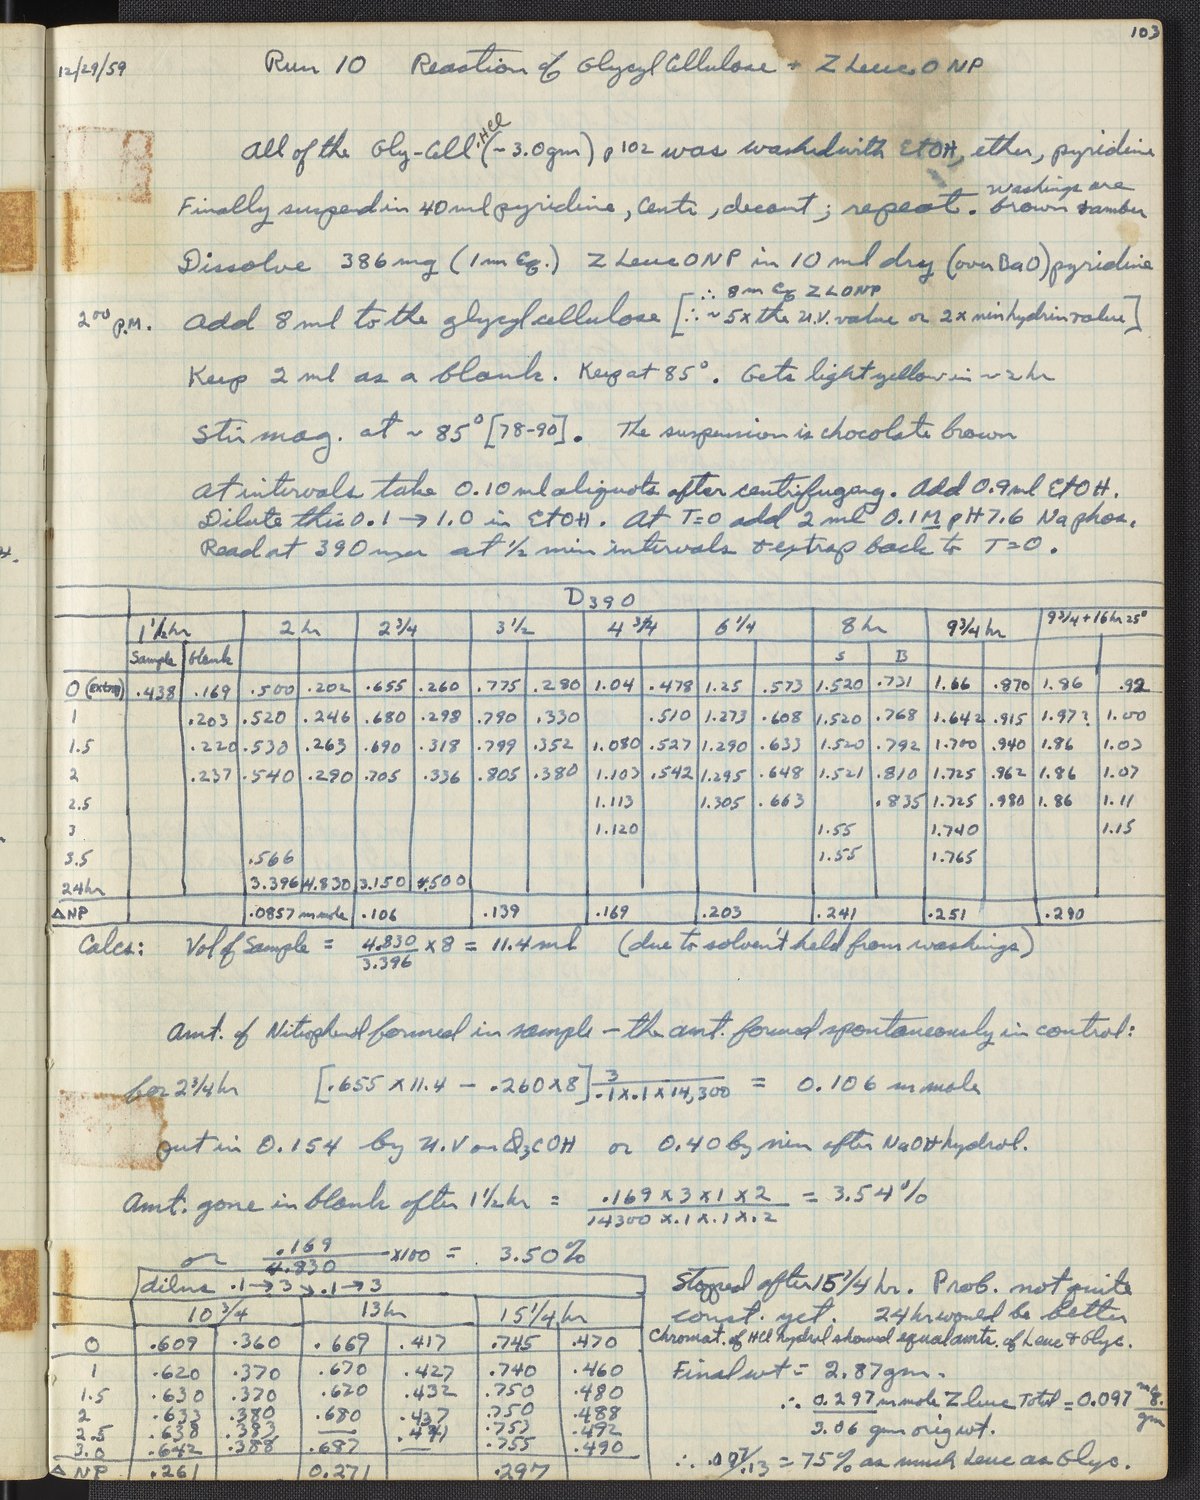 103
12/29/59 Run 10 Reaction of Glycyl Cellulose + Z Leuc ONP
All of the Gly-Cell·HCl (~3.0gm) p 102 was washed with EtOH, ether, pyridine
Finally suspend in 40 ml pyridine, centr, decant; repeat. washings are brown & amber
Dissolve 386 mg (1 m Eq.) Z Leuc ONP in 10 ml dry (over BaO) pyridine
2⁰⁰ P.M. Add 8 ml to the glycyl cellulose [∴ .8 m Eq ZLONP
∴ ~5x the U.V. value or 2x ninhydrin value]
Keep 2 ml as a blank. Keep at 85°. Gets light yellow in ~2 hr
Stir mag. at ~ 85° [78-90]. The suspension is chocolate brown
At intervals take 0.10 ml aliquots after centrifugeng. Add 0.9 ml EtOH.
Dilute this 0.1 → 1.0 in EtOH. At T=0 add 2 ml 0.1M pH 7.6 Na phos.
Read at 390 mµ at ½ min intervals & extrap back to T=0.
D390
1 1/2 hr 2 hr 2 3/4 3 1/2 4 3/4 6 1/4 8 hr 9 3/4 hr 9 3/4 + 16 hr 25°
Sample blank S B
0 (extrap) .438 .169 .500 .202 .655 .260 .775 .280 1.04 .478 1.25 .573 1.520 .731 1.66 .870 1.86 .92
1 .203 .520 .246 .680 .298 .790 .330 .510 1.273 .608 1.520 .768 1.642 .915 1.97? 1.00
1.5 .220 .530 .263 .690 .318 .799 .352 1.080 .527 1.290 .633 1.520 .792 1.700 .940 1.86 1.03
2 .237 .540 .290 .705 .336 .805 .380 1.103 .542 1.295 .648 1.521 .810 1.725 .962 1.86 1.07
2.5 1.113 1.305 .663 .835 1.725 .980 1.86 1.11
3 1.120 1.55 1.740 1.15
3.5 .566 1.55 1.765
24hr 3.396 4.830 3.150 4.500
Δ NP .0857 m mole .106 .139 .169 .203 .241 .251 .290
Calcs: Vol of Sample = 4.830/3.396 x 8 = 11.4 ml (due to solvent held from washings)
Amt. of Nitrophenol formed in sample – the amt. formed spontaneously in control:
for 2 3/4 hr [.655 x 11.4 – .260 x 8] 3/.1 x .1 x 14,300 = 0.106 m mole
put in 0.154 by U.V on Ø3COH or 0.40 by nin after NaOH hydrol.
Amt. gone in blank after 1 1/2 hr = .169 x 3 x 1 x 2/14300 x .1 x .1 x .2 = 3.54%
or .169/4.830 x100 = 3.50%
dilns .1→3 ↘ .1→3
10 3/4 13 hr 15 1/4 hr
0 .609 .360 .669 .417 .745 .470
1 .620 .370 .670 .427 .740 .460
1.5 .630 .370 .620 .432 .750 .480
2 .633 .380 .680 .437 .750 .488
2.5 .638 .383 — .441 .753 .492
3.0 .642 .388 .687 — .755 .490
Δ NP .261 0.271 .297
Stopped after 15 1/4 hr. Prob. not quite
const. yet. 24 hr would be better
Chromat. of HCl hydrol showed equal amts. of Leuc & Glyc.
Final wt = 2.87 gm.
∴ 0.297 m mole Z leuc Total/3.06 gm orig wt. = 0.097 m Eq./gm
∴ .097/.13 = 75% as much Leuc as Glyc.